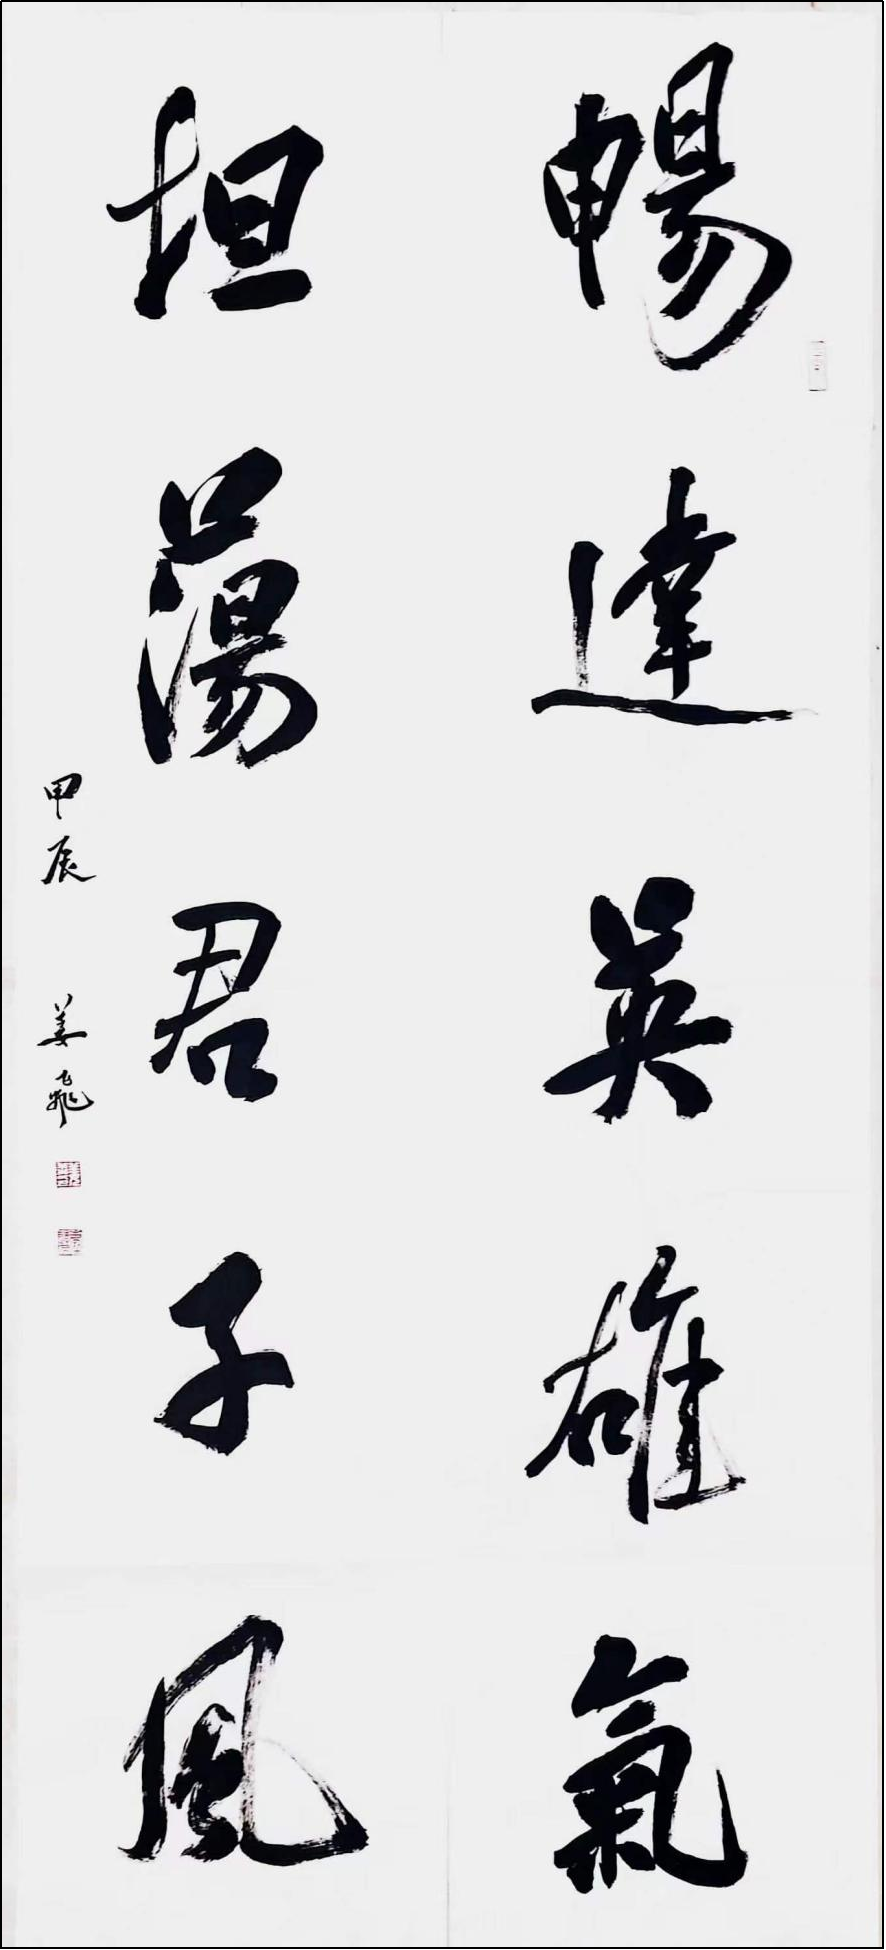 暢達英雄氣
坦蕩君子風
甲辰 姜飛